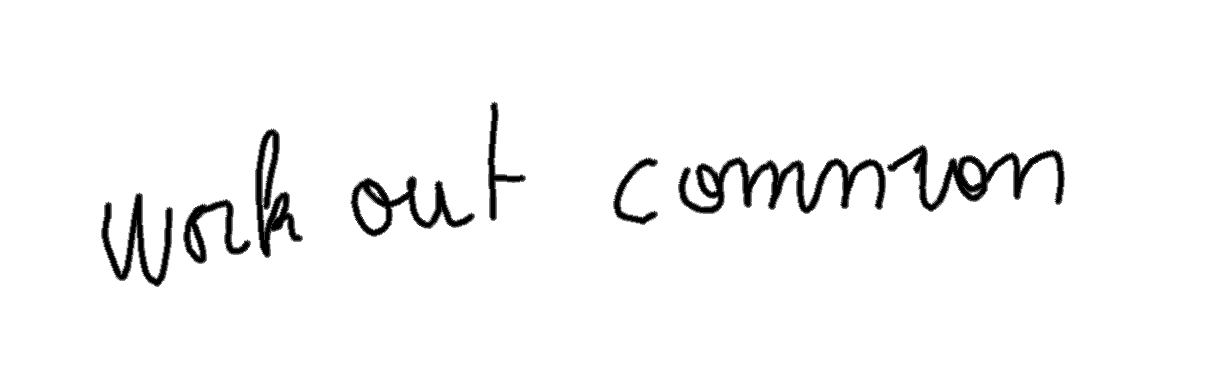 work out common